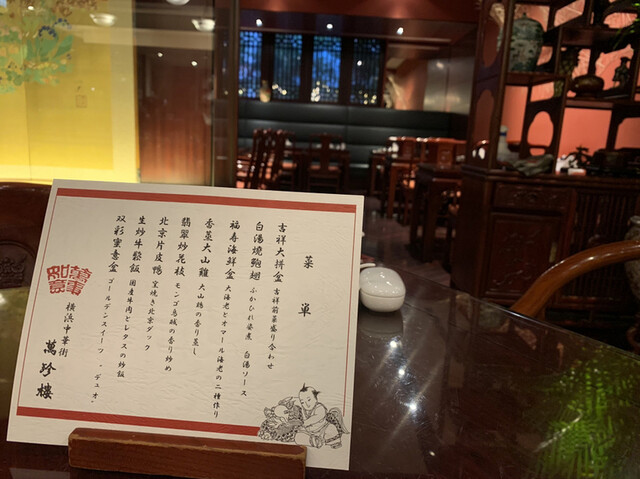 菜単
吉祥大拼盆 吉祥前菜盛り合わせ
白湯燒鮑翅 ふかひれ姿煮 白湯ソース
福寿海鮮盒 大海老とオマール海老の二種作り
香蒸大山雞 大山鶏の香り蒸し
翡翠炒花枝 モンゴ烏賊の香り炒め
北京片皮鴨 窯焼き北京ダック
生炒牛鬆飯 国産牛肉とレタスの炒飯
双彩蜜意盒 ゴールデンスイーツ・デュオ・
萬事如意
横浜中華街 萬珍樓